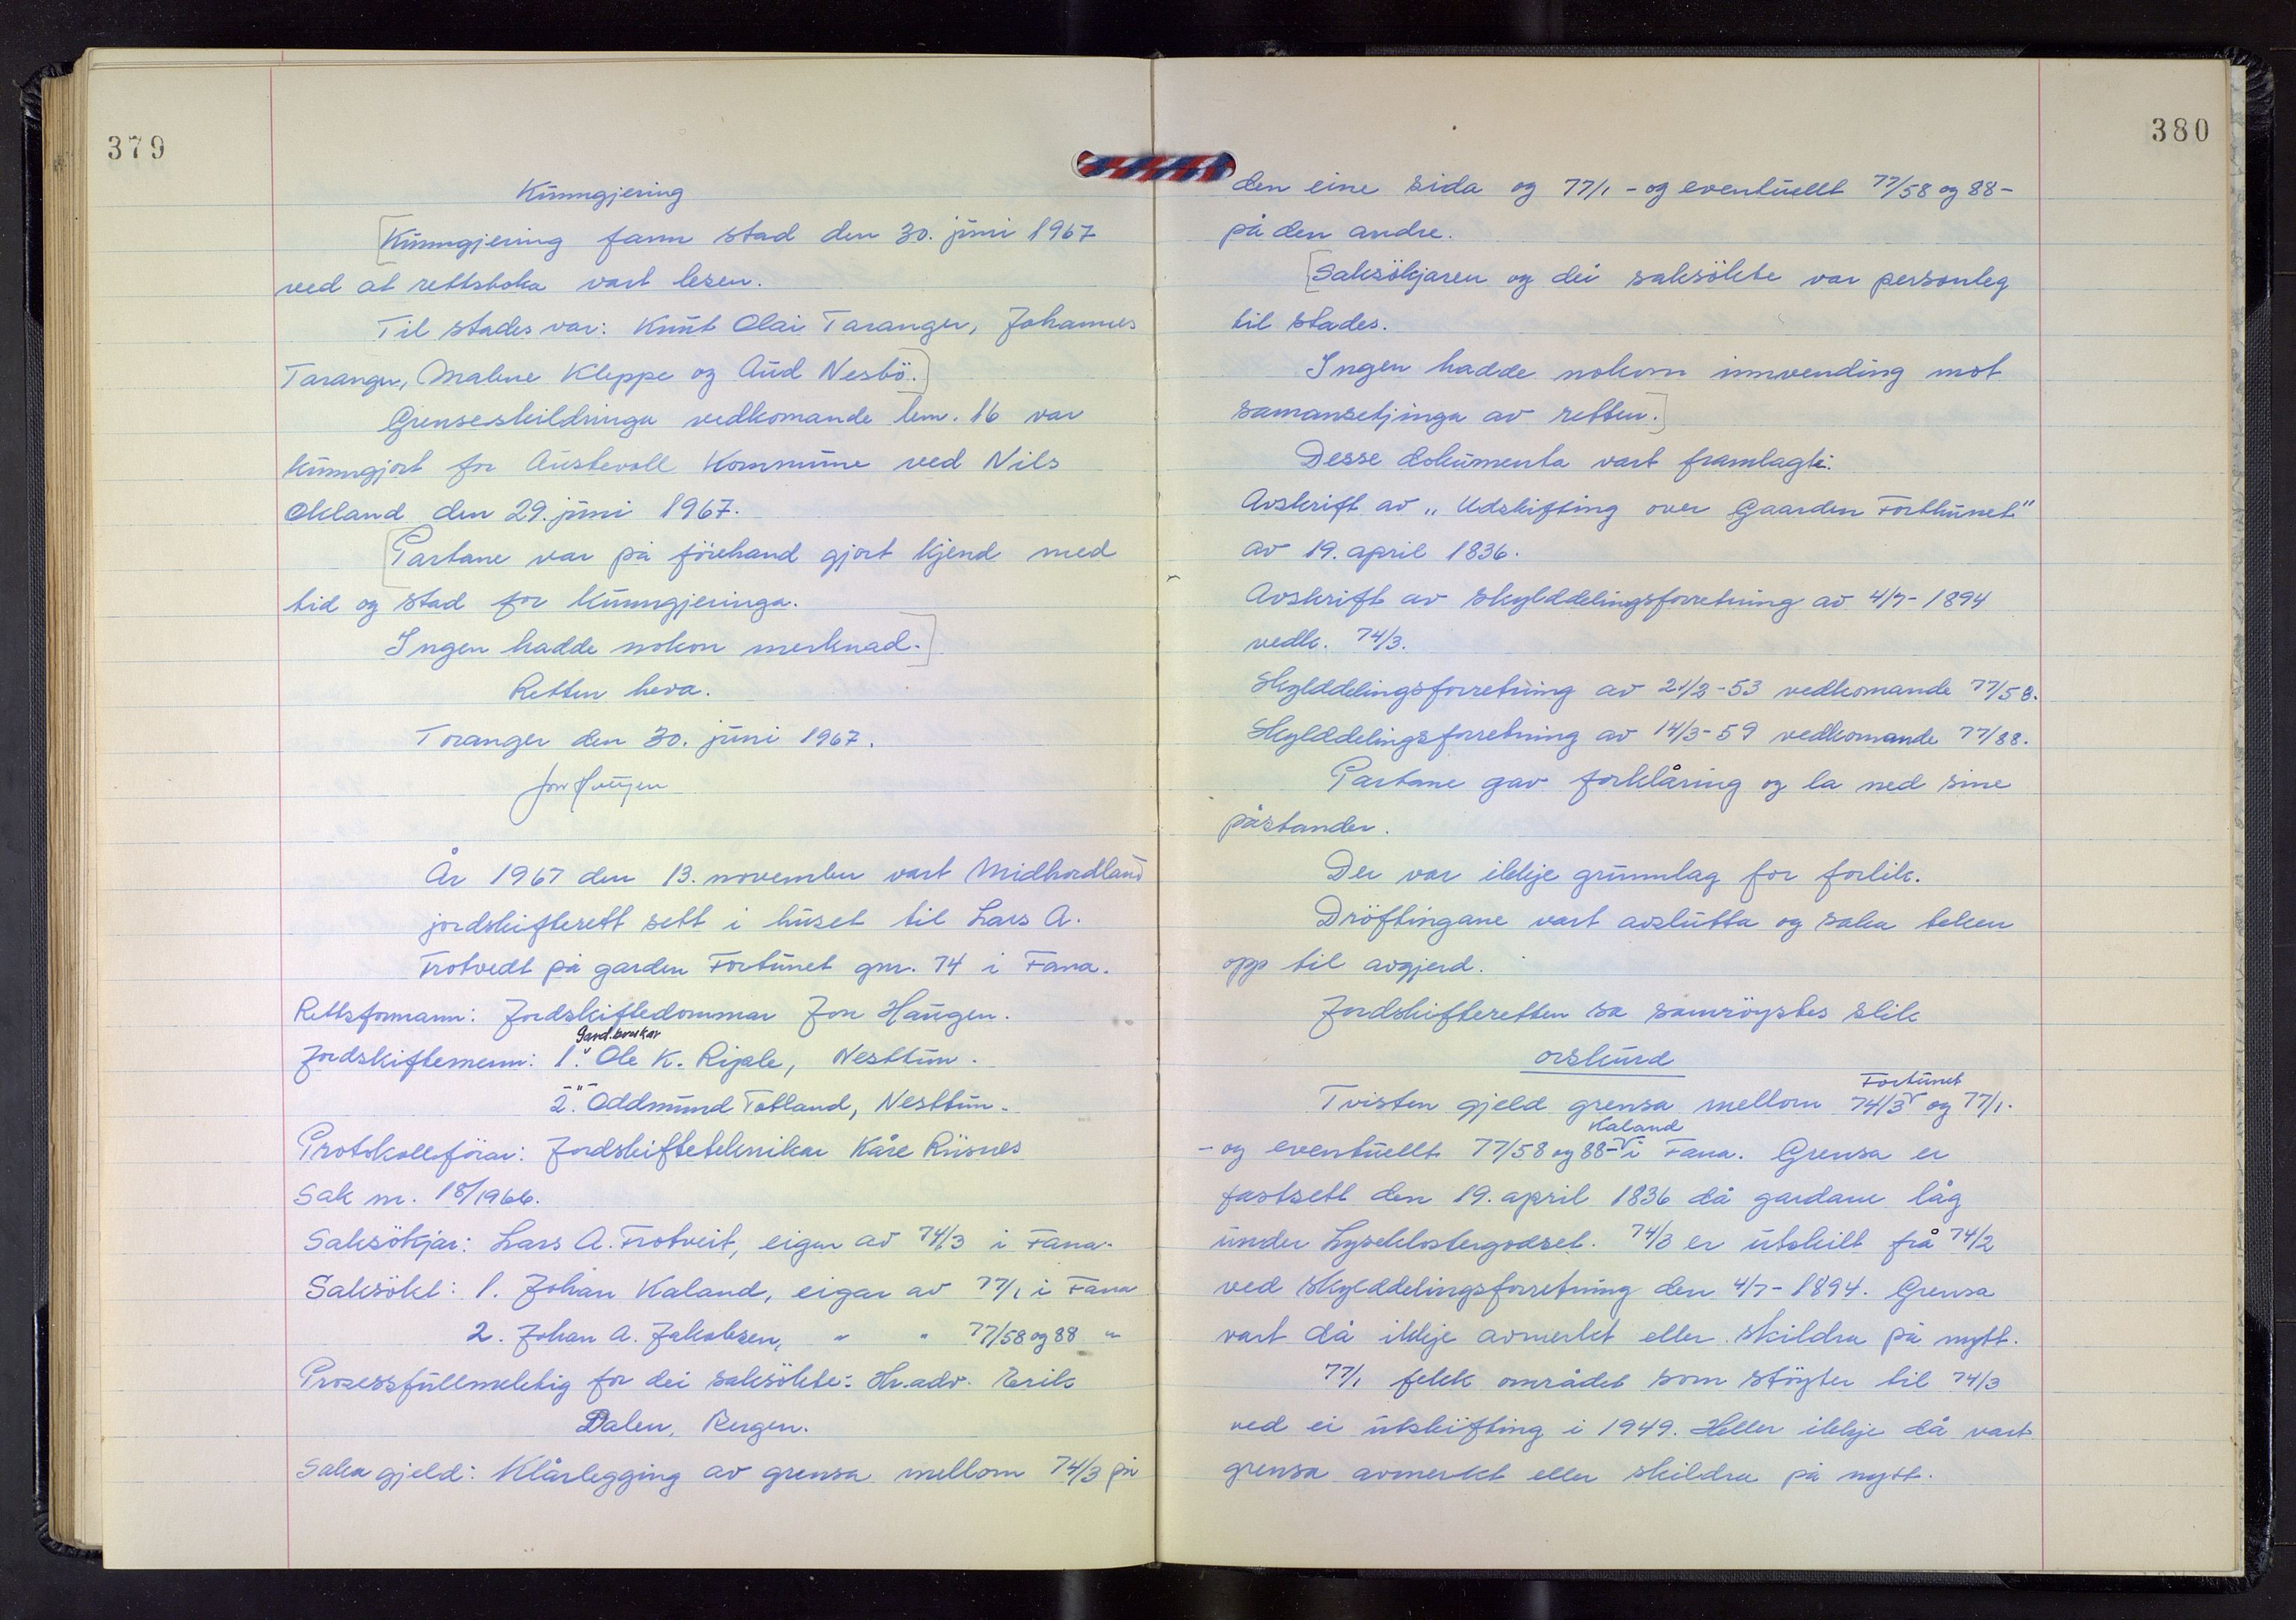 379
Kunngjering
[Kunngjering fann stad den 30. juni 1967
ved at rettsboka vart lesen.
Til stades var: Knut Olai Taranger, Johannes
Taranger, Malene Kleppe og Aud Nesbö.]
Grenseskildringa vedkomande lem. 16 var
kunngjort for Austevoll Kommune ved Nils
Okland den 29. juni 1967.
[Partane var på förehand gjort kjend med
tid og stad for kunngjeringa.
Ingen hadde nokon merknad.]
Retten heva.
Toranger den 30. juni 1967.
Jon Haugen
År 1967 den 13. november vart Midhordland
jordskifterett sett i huset til Lars A.
Trotvedt på garden Fortunet gnr. 74 i Fana.
Rettsformann: Jordskiftedommar Jon Haugen.
Gard.brukar
Jordskiftemenn: 1. Ole K. Riple, Nesttun.
-"-
2. Oddmund Totland, Nesttun.
Protokollförar: Jordskifteteknikar Kåre Riisnes
Sak nr. 18/1966.
Saksökjar: Lars A. Trotveit, eigar av 74/3 i Fana.
Saksökt: 1. Johan Kaland, eigar av 77/1 i Fana
2. Johan A. Jakobsen, " " 77/58 og 88 "
Prosessfullmektig for dei saksökte: Hr.adv. Erik
Dalen, Bergen.
Saka gjeld: Klårlegging av grensa mellom 74/3 på
380
den eine sida og 77/1 - og eventuellt 77/58 og 88 -
på den andre.
[Saksökjaren og dei saksökte var personleg
til stades.
Ingen hadde nokon innvending mot
samansetjinga av retten.]
Desse dokumenta vart framlagt:
Avskrift av "Udskifting over Gaarden Forthunet"
av 19. april 1836.
Avskrift av skylddelingsforretning av 4/7-1894
vedk. 74/3.
Skylddelingsforretning av 21/2-53 vedkomande 77/58.
Skylddelingsforretning av 14/3-59 vedkomande 77/88.
Partane gav forklåring og la ned sine
påstander.
Der var ikkje grunnlag for forlik.
Dröftingane vart avslutta og saka teken
opp til avgjerd.
Jordskifteretten sa samröystes slik
orskurd
Fortunet
Tvisten gjeld grensa mellom 74/3 og 77/1.
Kaland
- og eventuellt 77/58 og 88 - i Fana. Grensa er
fastsett den 19. april 1836 då gardane låg
under Lyseklostergodset. 74/3 er utskilt frå 74/2
ved skylddelingsforretning den 4/7-1894. Grensa
vart då ikkje avmerkt eller skildra på nytt.
77/1 fekk området som støyter til 74/3
ved ei utskifting i 1949. Heller ikkje då vart
grensa avmerkt eller skildra på nytt.